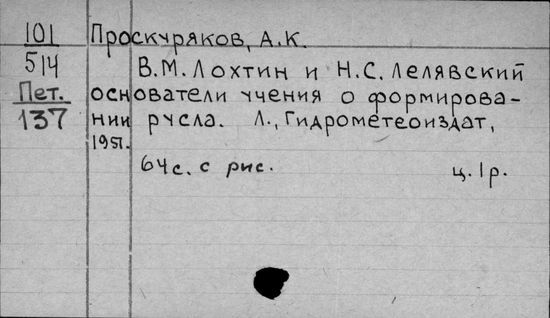 101 Проскуряков, А.К.
514 В.М. Лохтин и Н.С. Лелявский
Пет. основатели учения о формирова-
137 нии русла. Л., Гидрометеоиздат,
1951.
64с. с рис. ц. 1р.